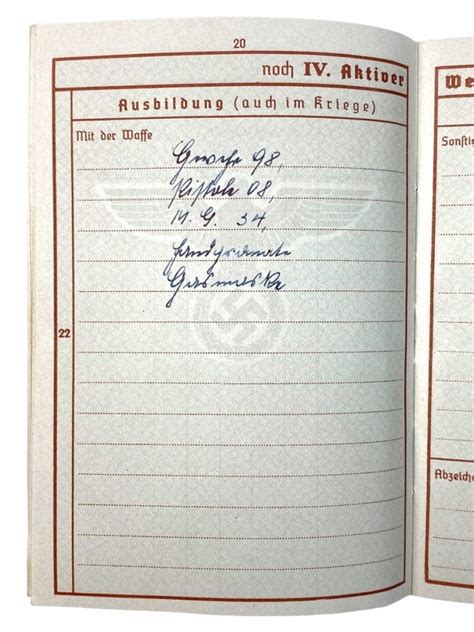 20
noch IV. Aktiver
We
Ausbildung (auch im Kriege)
Mit der Waffe
Sonstig
Gewehr 98,
Pistole 08,
M. G. 34,
Handgranate
Gasmaske
22
Abzeiche